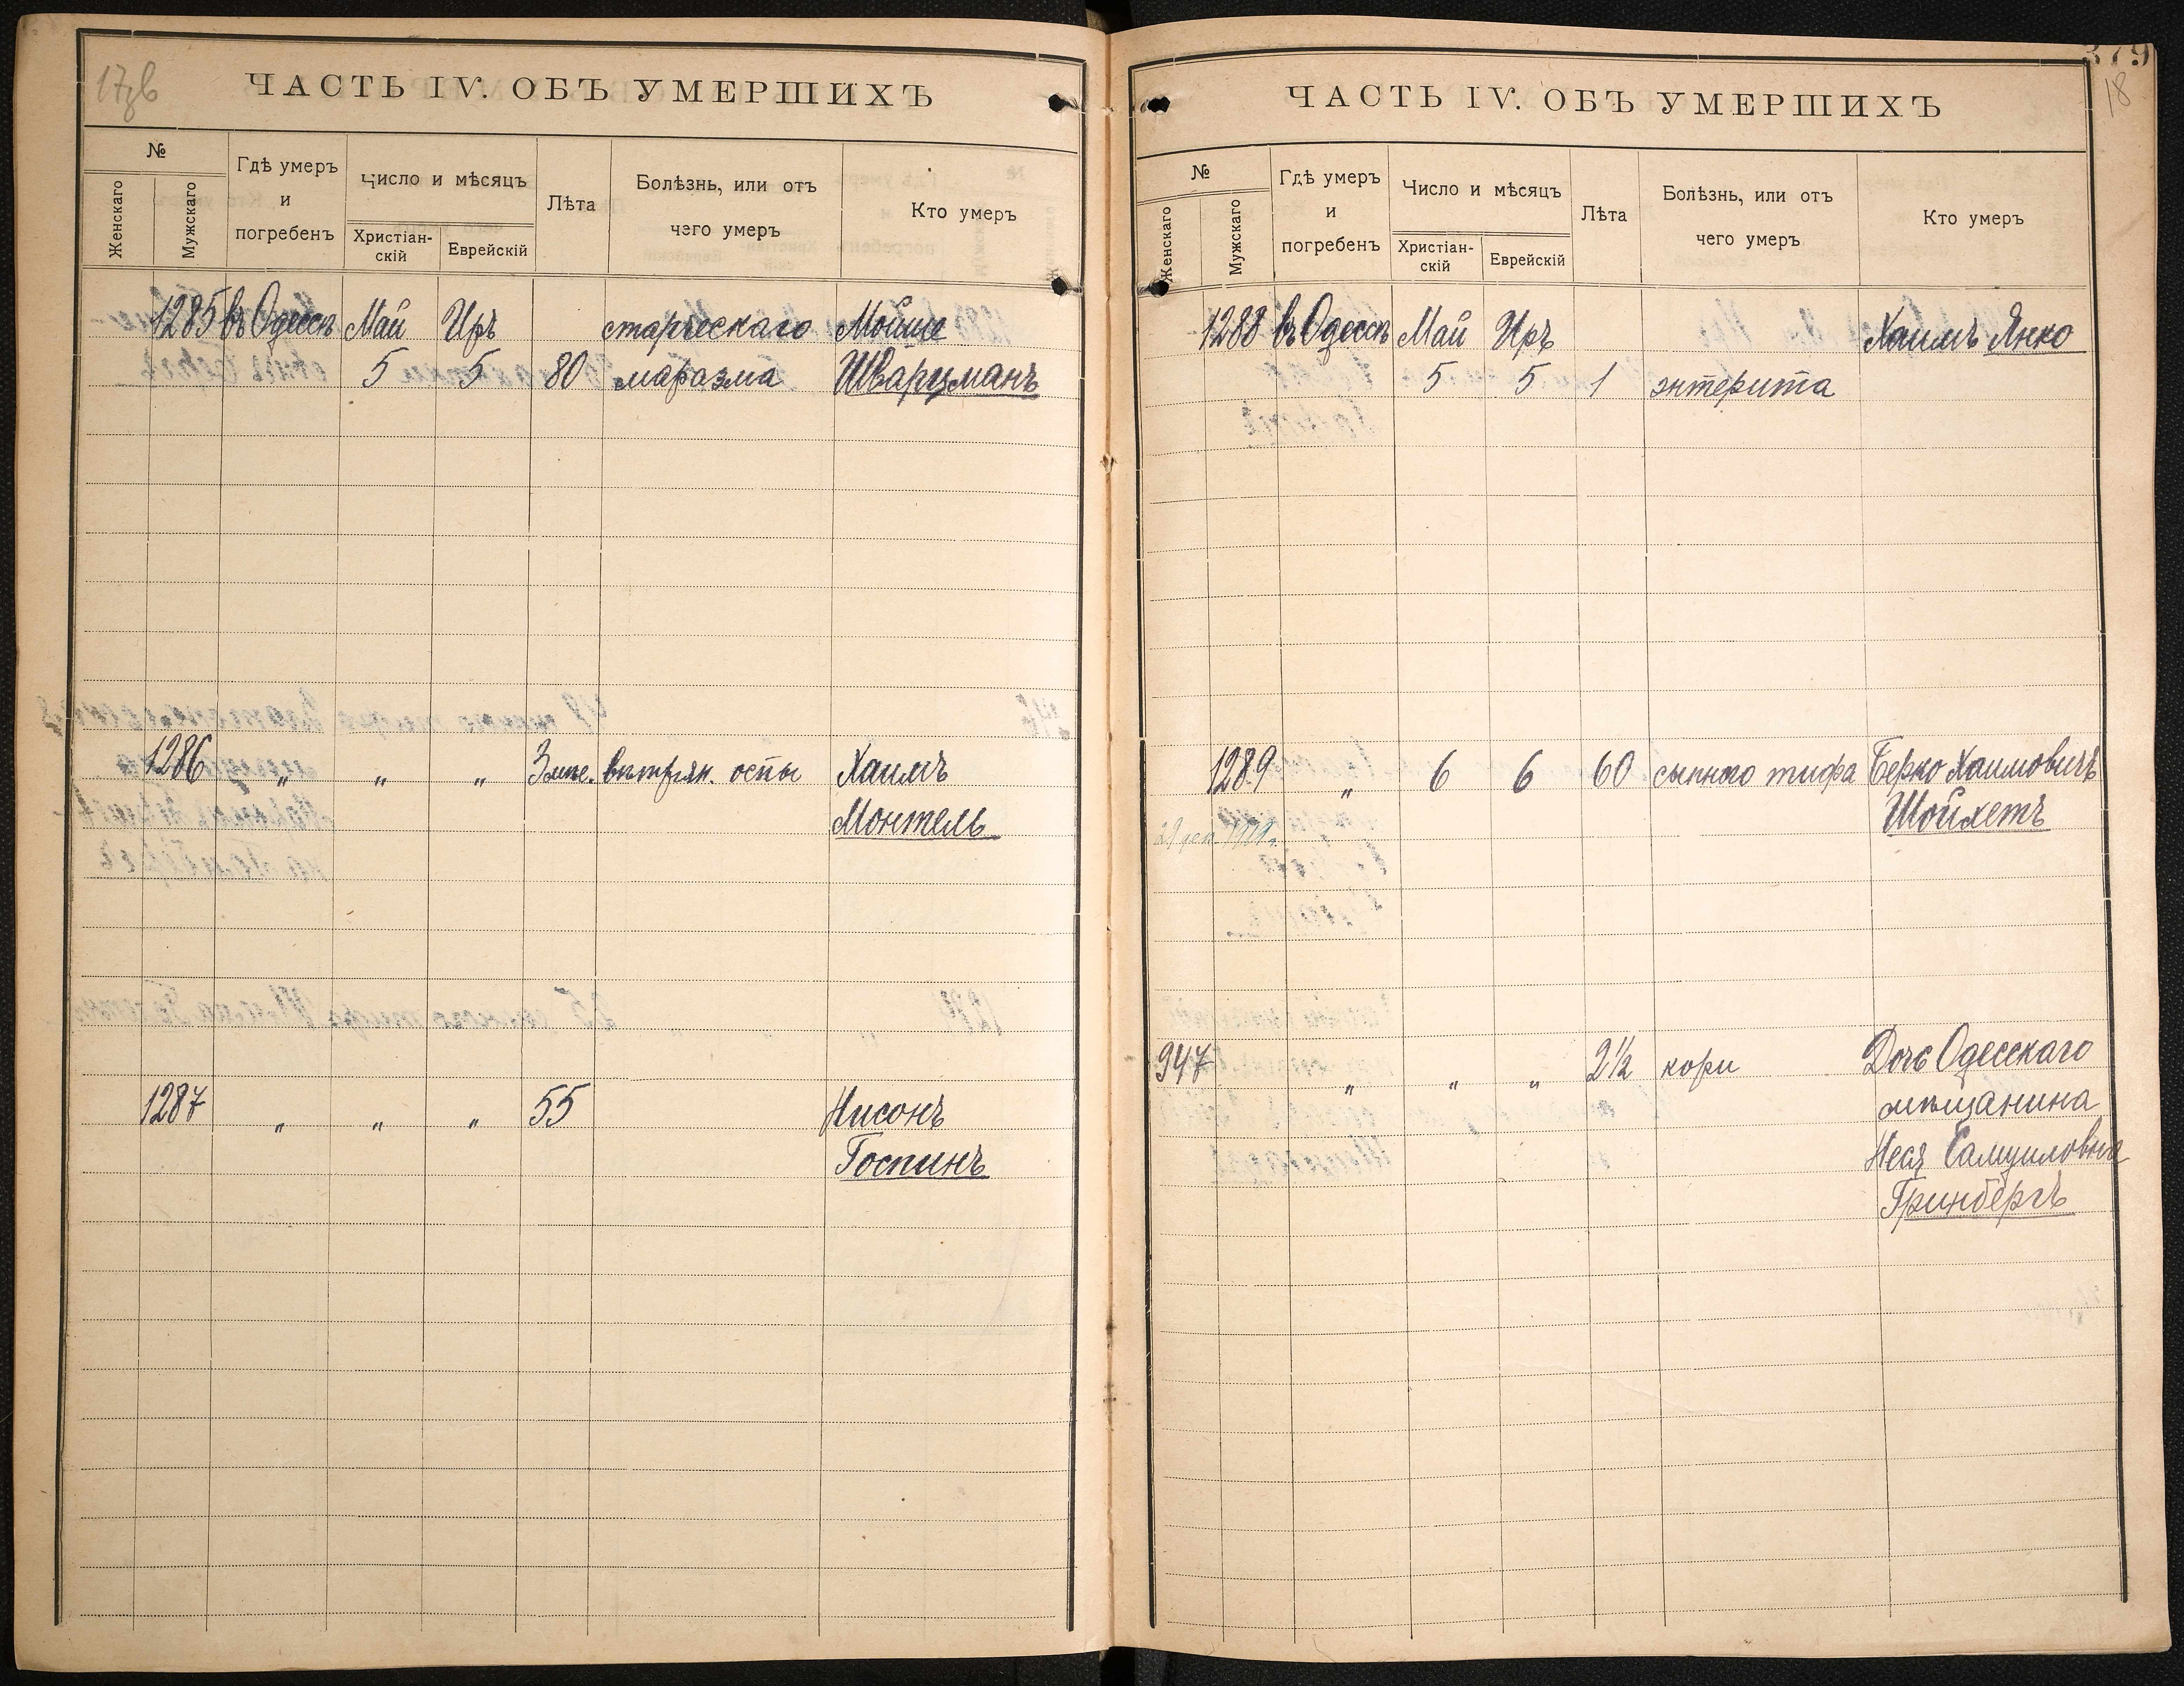 ЧАСТЬ IV. ОБЪ УМЕРШИХЪ
№
Женскаго
Мужскаго
Гдѣ умеръ
и
погребенъ
Число и мѣсяцъ
Христіан-
скій
Еврейскій
Лѣта
Болѣзнь, или отъ
чего умеръ
Кто умеръ
1285 въ Одессѣ Май Иръ старческаго Мойше
5 5 80 маразма Шварцманъ
1286 " " " 3 мѣс. вѣтрян. оспы Хаимъ
Монтель
1287 " " " 55 Нисонъ
Госпинъ
379
18
ЧАСТЬ IV. ОБЪ УМЕРШИХЪ
№
Женскаго
Мужскаго
Гдѣ умеръ
и
погребенъ
Число и мѣсяцъ
Христіан-
скій
Еврейскій
Лѣта
Болѣзнь, или отъ
чего умеръ
Кто умеръ
1288 въ Одессѣ Май Иръ Хаимъ Янко
5 5 1 энтерита
1289 " 6 6 60 сыпного тифа Берко Хаимовичъ
Шойхетъ
947 " " " 2½ кори Дочь Одесскаго
мѣщанина
Неся Самуиловна
Гринбергъ